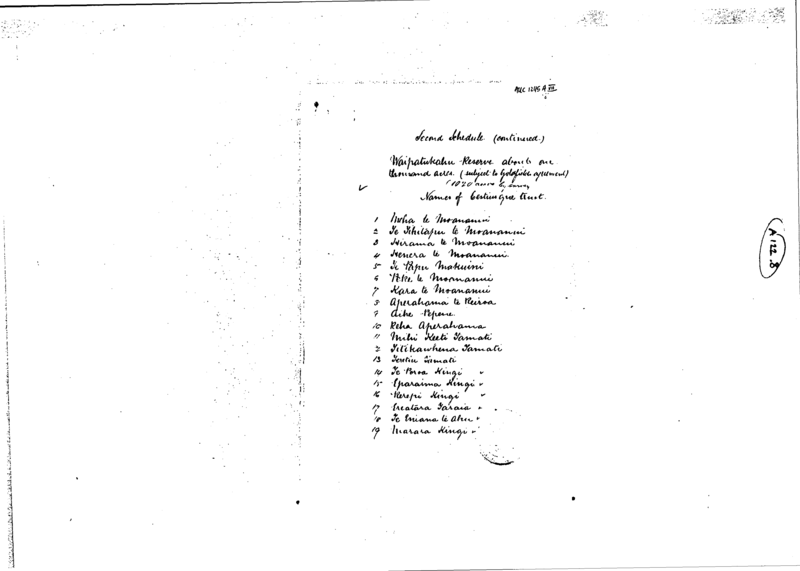 MLC 1245 A
Second Schedule (continued.)
Waipatukahu Reserve about one
thousand acres. (subject to Goldfields agreement)
1020 acres by survey
Names of Cestuis que trust.
1 te Moananui
2 Te te Moananui
3 Hirama te Moananui
4 Henera te Moananui
5 Te
6 te Moananui
7 Kara te Moananui
8 Aperahama te Reiroa
9 Pepene
10 Reha Aperahama
11 Mihi Keeti Tamati
2 Titikawhena Tamati
13 Tamati
14 Te Poroa Kingi "
15 Eparaima Kingi "
16 Kerepi Kingi "
17 Taraia "
18 Te te "
19 Marara Kingi "
A 122.8